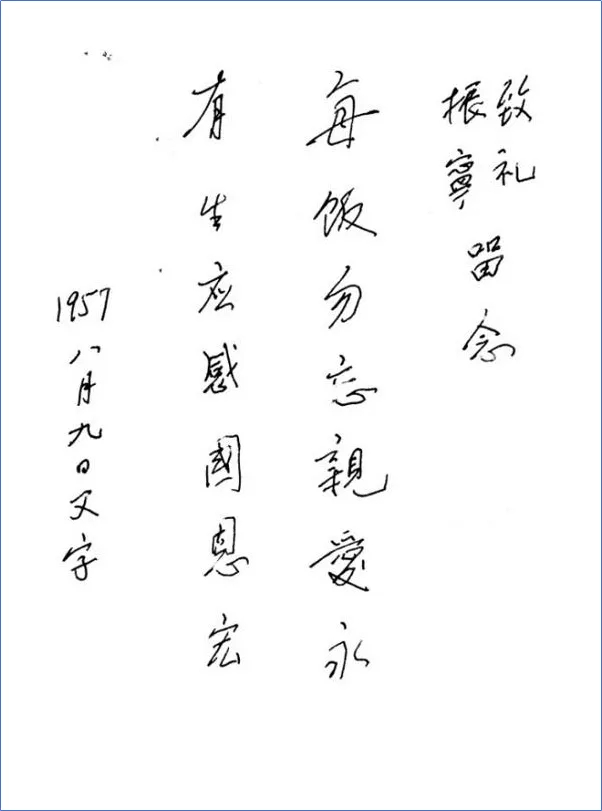 致礼
振寧
留念
每饭勿忘親愛永
有生应感國恩宏
1957八月九日父字